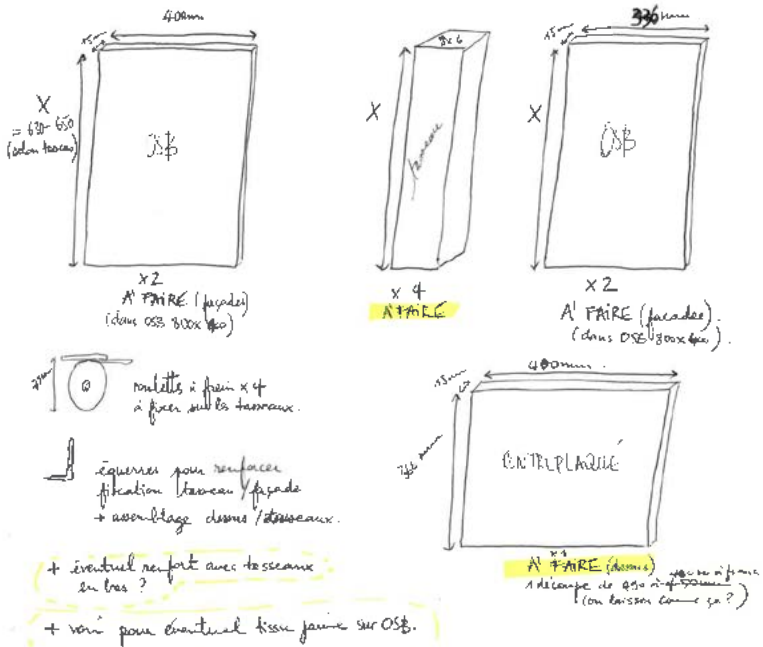 400mm
15mm
X
= 630-650
(selon tasseau)
OSB
x2
A' FAIRE (façades)
(dans OSB 800x400)
X
tasseau
x 4
A' FAIRE
336 mm
15mm
X
OSB
x2
A' FAIRE (façades).
(dans OSB 800x400).
roulettes à frein x4
à fixer sur les tasseaux.
équerres pour renforcer
fixation tasseau/façade
+ assemblage dessus/tasseaux.
+ éventuel renfort avec tasseaux
en bas ?
+ voir pour éventuel tissu jaune sur OSB.
400mm.
15mm
366 mm
CONTREPLAQUÉ
x1
A' FAIRE (dessus)
1 découpe de
(on laisse comme ça ?)